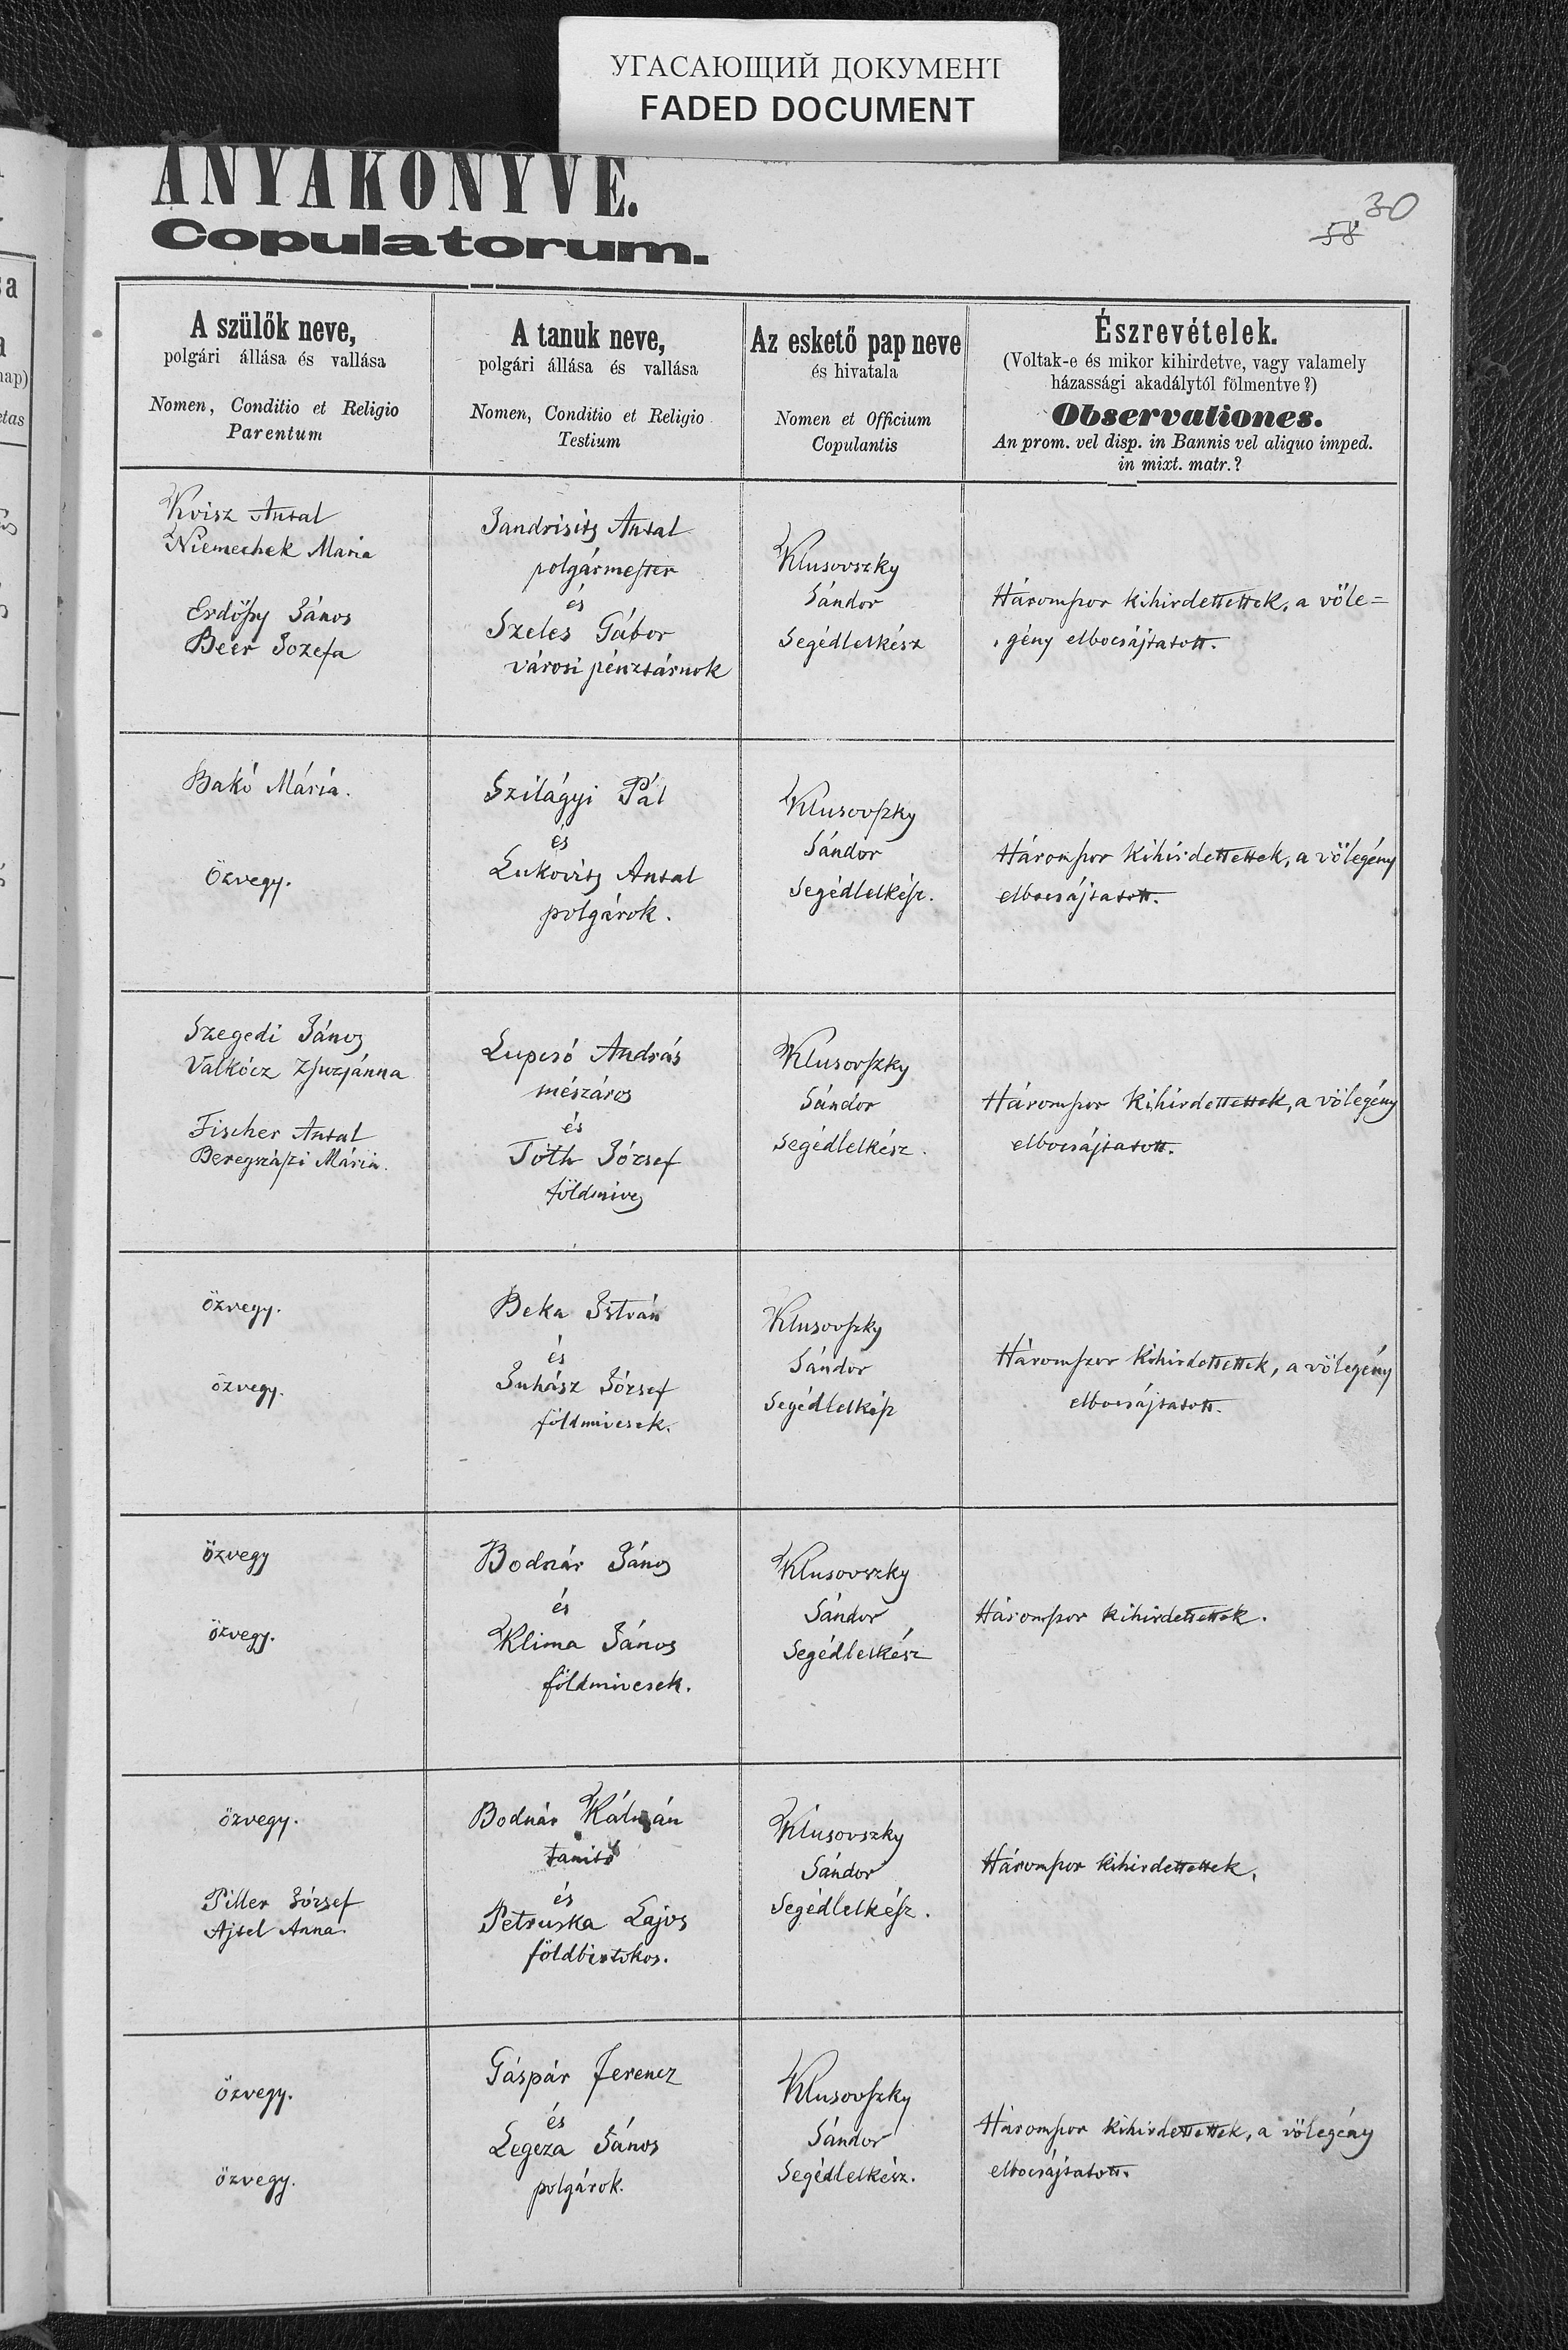 УГАСАЮЩИЙ ДОКУМЕНТ
FADED DOCUMENT
ANYAKÖNYVE.
Copulatorum.
30
58
A szülők neve,
polgári állása és vallása
Nomen, Conditio et Religio
Parentum
A tanuk neve,
polgári állása és vallása
Nomen, Conditio et Religio
Testium
Az eskető pap neve
és hivatala
Nomen et Officium
Copulantis
Észrevételek.
(Voltak-e és mikor kihirdetve, vagy valamely
házassági akadálytól fölmentve?)
Observationes.
An prom. vel disp. in Bannis vel aliquo imped.
in mixt. matr.?
Kvisz Antal
Niemechek Maria
Erdőszy János
Beer Jozefa
Jandrisits Antal
polgármester
és
Szeles Gábor
városi pénztárnok
Klusovszky
Sándor
Segédlelkész
Háromszor kihirdettettek, a vőle=
gény elbocsájtatott.
Bakó Mária.
Özvegy.
Szilágyi Pál
és
Lukovits Antal
polgárok.
Klusovszky
Sándor
Segédlelkész.
Háromszor kihirdettettek, a völegény
elbocsájtatott.
Szegedi János
Valkócz Zsuzsánna
Fischer Antal
Beregszászi Mária.
Lupcsó András
mészáros
és
Tóth József
földmives
Klusovszky
Sándor
Segédlelkész.
Háromszor kihirdettettek, a völegény
elbocsájtatott.
özvegy.
özvegy.
Beka István
és
Juhász József
földmivesek.
Klusovszky
Sándor
Segédlelkész
Háromszor kihirdettettek, a völegény
elbocsájtatott.
özvegy
özvegy.
Bodnár János
és
Klima János
földmivesek.
Klusovszky
Sándor
Segédlelkész
Háromszor kihirdettettek.
özvegy.
Piller József
Ajtel Anna.
Bodnár Kálmán
tanitó
és
Petruska Lajos
földbirtokos.
Klusovszky
Sándor
Segédlelkész.
Háromszor kihirdettettek.
özvegy.
özvegy.
Gáspár Ferencz
és
Legeza János
polgárok.
Klusovszky
Sándor
Segédlelkész.
Háromszor kihirdettettek, a völegény
elbocsájtatott.